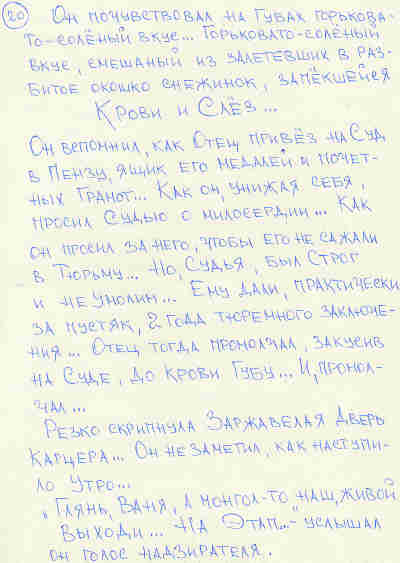 20 Он почувствовал на Губах горькова-
то-солёный вкус... Горьковато-солёный
вкус, смешаный из залетевших в раз-
битое окошко снежинок, запёкшейся
Крови и Слёз...
Он вспомнил, как Отец привёз на Суд,
в Пензу, ящик его медалей и почет-
ных Грамот... Как он, унижая себя,
просил Судью о милосердии... Как
он просил за него, чтобы его не сажали
в Тюрьму... Но, Судья, был Строг
и не умолим... Ему дали, практически
за пустяк, 2 года тюремного заключе-
ния... Отец тогда промолчал, закусив
на Суде, до крови Губу... И, промол-
чал...
Резко скрипнула Заржавелая Дверь
карцера... Он не заметил, как наступи-
ло Утро...
"Глянь, Ваня, а монгол-то наш, живой
Выходи... На Этап..." - услышал
он голос надзирателя.